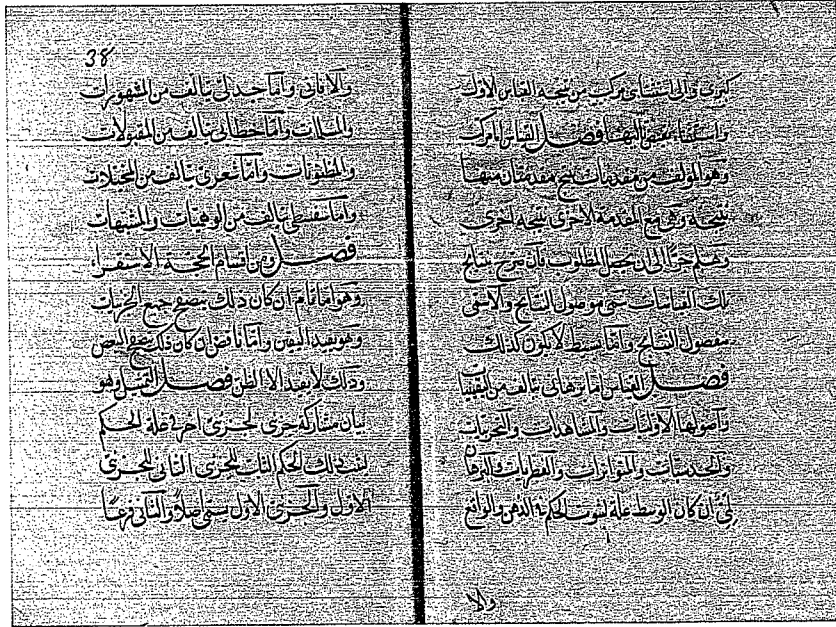 كبرى والى استثنائى مركب من نتيجة القياس الاول
واستثناء نقيض التالى فصل القياس اما مركب
وهو المؤلف من مقدمات ينتج مقدمتان منها
نتيجة وهى مع المقدمة الاخرى نتيجة اخرى
وهلم جرّا الى ان يحصل المطلوب فان صرح بنتايج
تلك القياسات سمى موصول النتايج والا سمى
مفصول النتايج واما بسيط لا يكون كذلك
فصل القياس اما برهانى يتالف من اليقينيات
واصولها الاوليات والمشاهدات والتجربيات
والحدسيات والمتواترات والفطريات والبرهان
لمّى ان كان الوسط علة لثبوت الحكم فى الذهن والواقع
ولا
38
والا فانى واما جدلى يتالف من المشهورات
والمسلمات واما خطابى يتالف من المقبولات
والمظنونات واما شعرى يتالف من المخيلات
واما سفسطى يتالف من الوهميات والمشبهات
فصل ومن اقسام الحجة الاستقراء
وهو اما تام ان كان ذلك بتصفح جميع الجزئيات
وهو يفيد اليقين واما ناقص ان كان ذلك بتصفح البعض
وذلك لا يفيد الا الظن فصل التمثيل وهو
بيان مشاركة جزئى لجزئى اخر فى علة الحكم
ليثبت ذلك الحكم الثابت للجزئى الثانى للجزئى
الاول والجزئى الاول يسمى اصلاً والثانى فرعاً